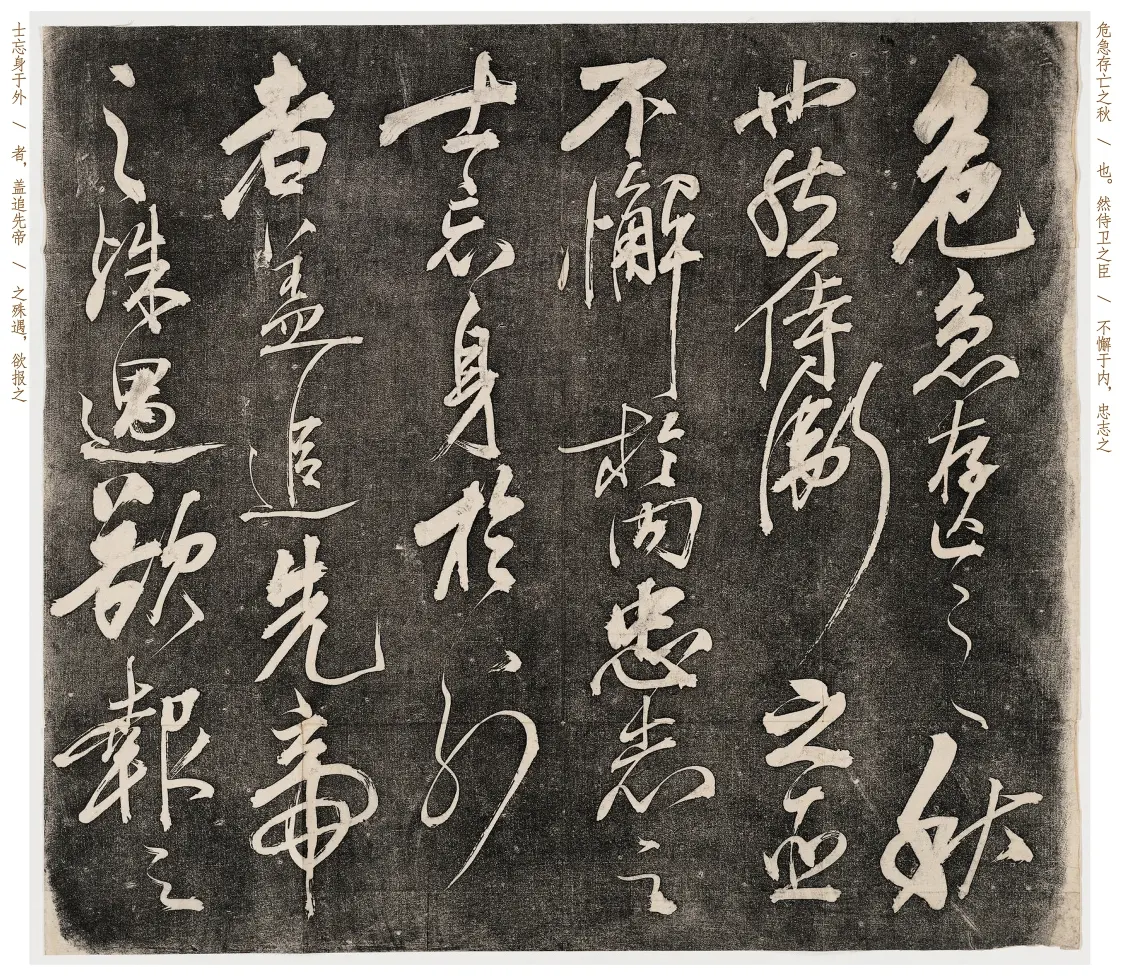 危急存亡之秋 / 也。然侍卫之臣 / 不懈于内，忠志之
危急存亡之秋
也然侍衛之臣
不懈於内忠志之
士忘身於外
者盖追先帝
之殊遇欲報之
士忘身于外 / 者，盖追先帝 / 之殊遇，欲报之